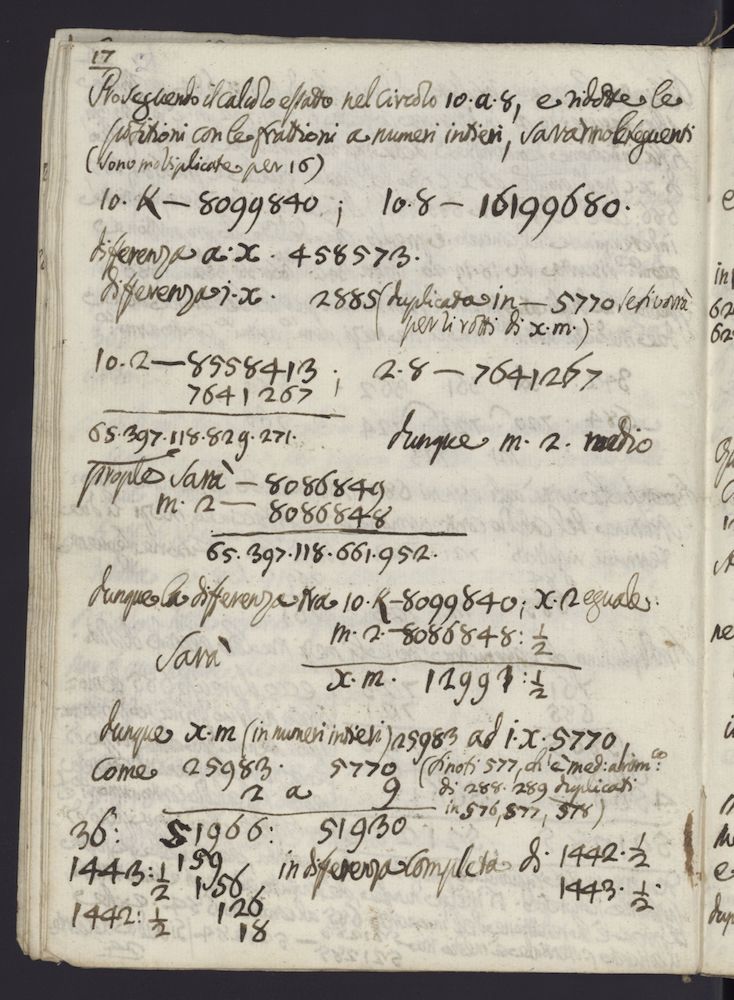 17
Proseguendo il calcolo esatto nel Circolo 10. a. 8, e ridotte le
positioni con le frattioni a numeri intieri, saranno le seguenti
(sono moltiplicate per 16)
10. K — 8099840 ; 10. 8 — 16199680.
differenza a. x. 458573.
differenza i. x. 2885 (duplicata in — 5770 le si vorrà
per li rotti di x. m.)
10. 2 — 8558413 ; 2. 8 — 7641267
7641267
65. 397. 118. 829. 271. dunque m. 2. medio
prople sarà — 8086849
m. 2 — 8086848
65. 397. 118. 661. 952.
dunque la differenza tra 10. K — 8099840; x. 2 eguale.
m. 2 — 8086848: 1/2
sarà
x. m. 12991: 1/2
dunque x. m (in numeri intieri) 25983 ad i. x. 5770,
come 25983. 5770 (si noti 577, ch'è med: aritm:co
2 a 9 di 288. 289 duplicati
in 576, 577, 578)
36: 51966: 51930
1443: 1/2 159 in differenza completa di 1442. 1/2
156 1443. 1/2.
1442: 1/2 126
18